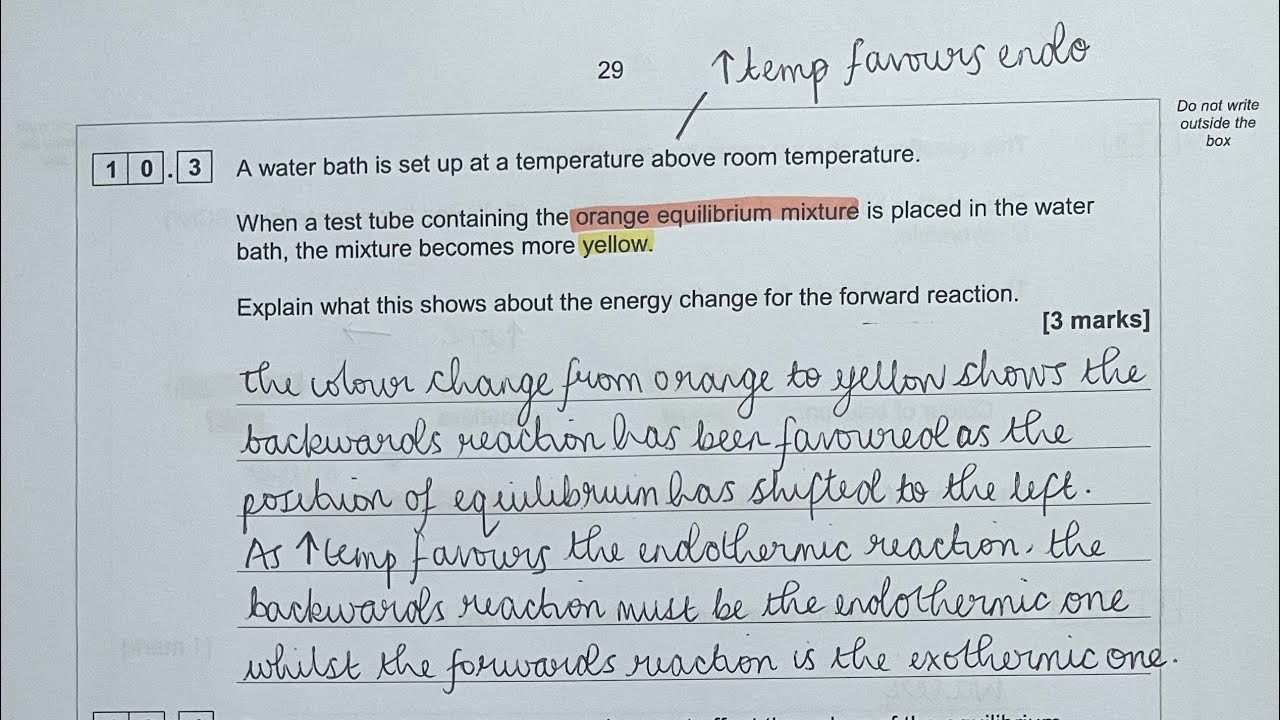 29
↑temp favours endo
Do not write
outside the
box
1 0 . 3 A water bath is set up at a temperature above room temperature.
When a test tube containing the orange equilibrium mixture is placed in the water
bath, the mixture becomes more yellow.
Explain what this shows about the energy change for the forward reaction.
[3 marks]
the colour change from orange to yellow shows the
backwards reaction has been favoured as the
position of equilibrium has shifted to the left.
As ↑temp favours the endothermic reaction, the
backwards reaction must be the endothermic one
whilst the forwards reaction is the exothermic one.